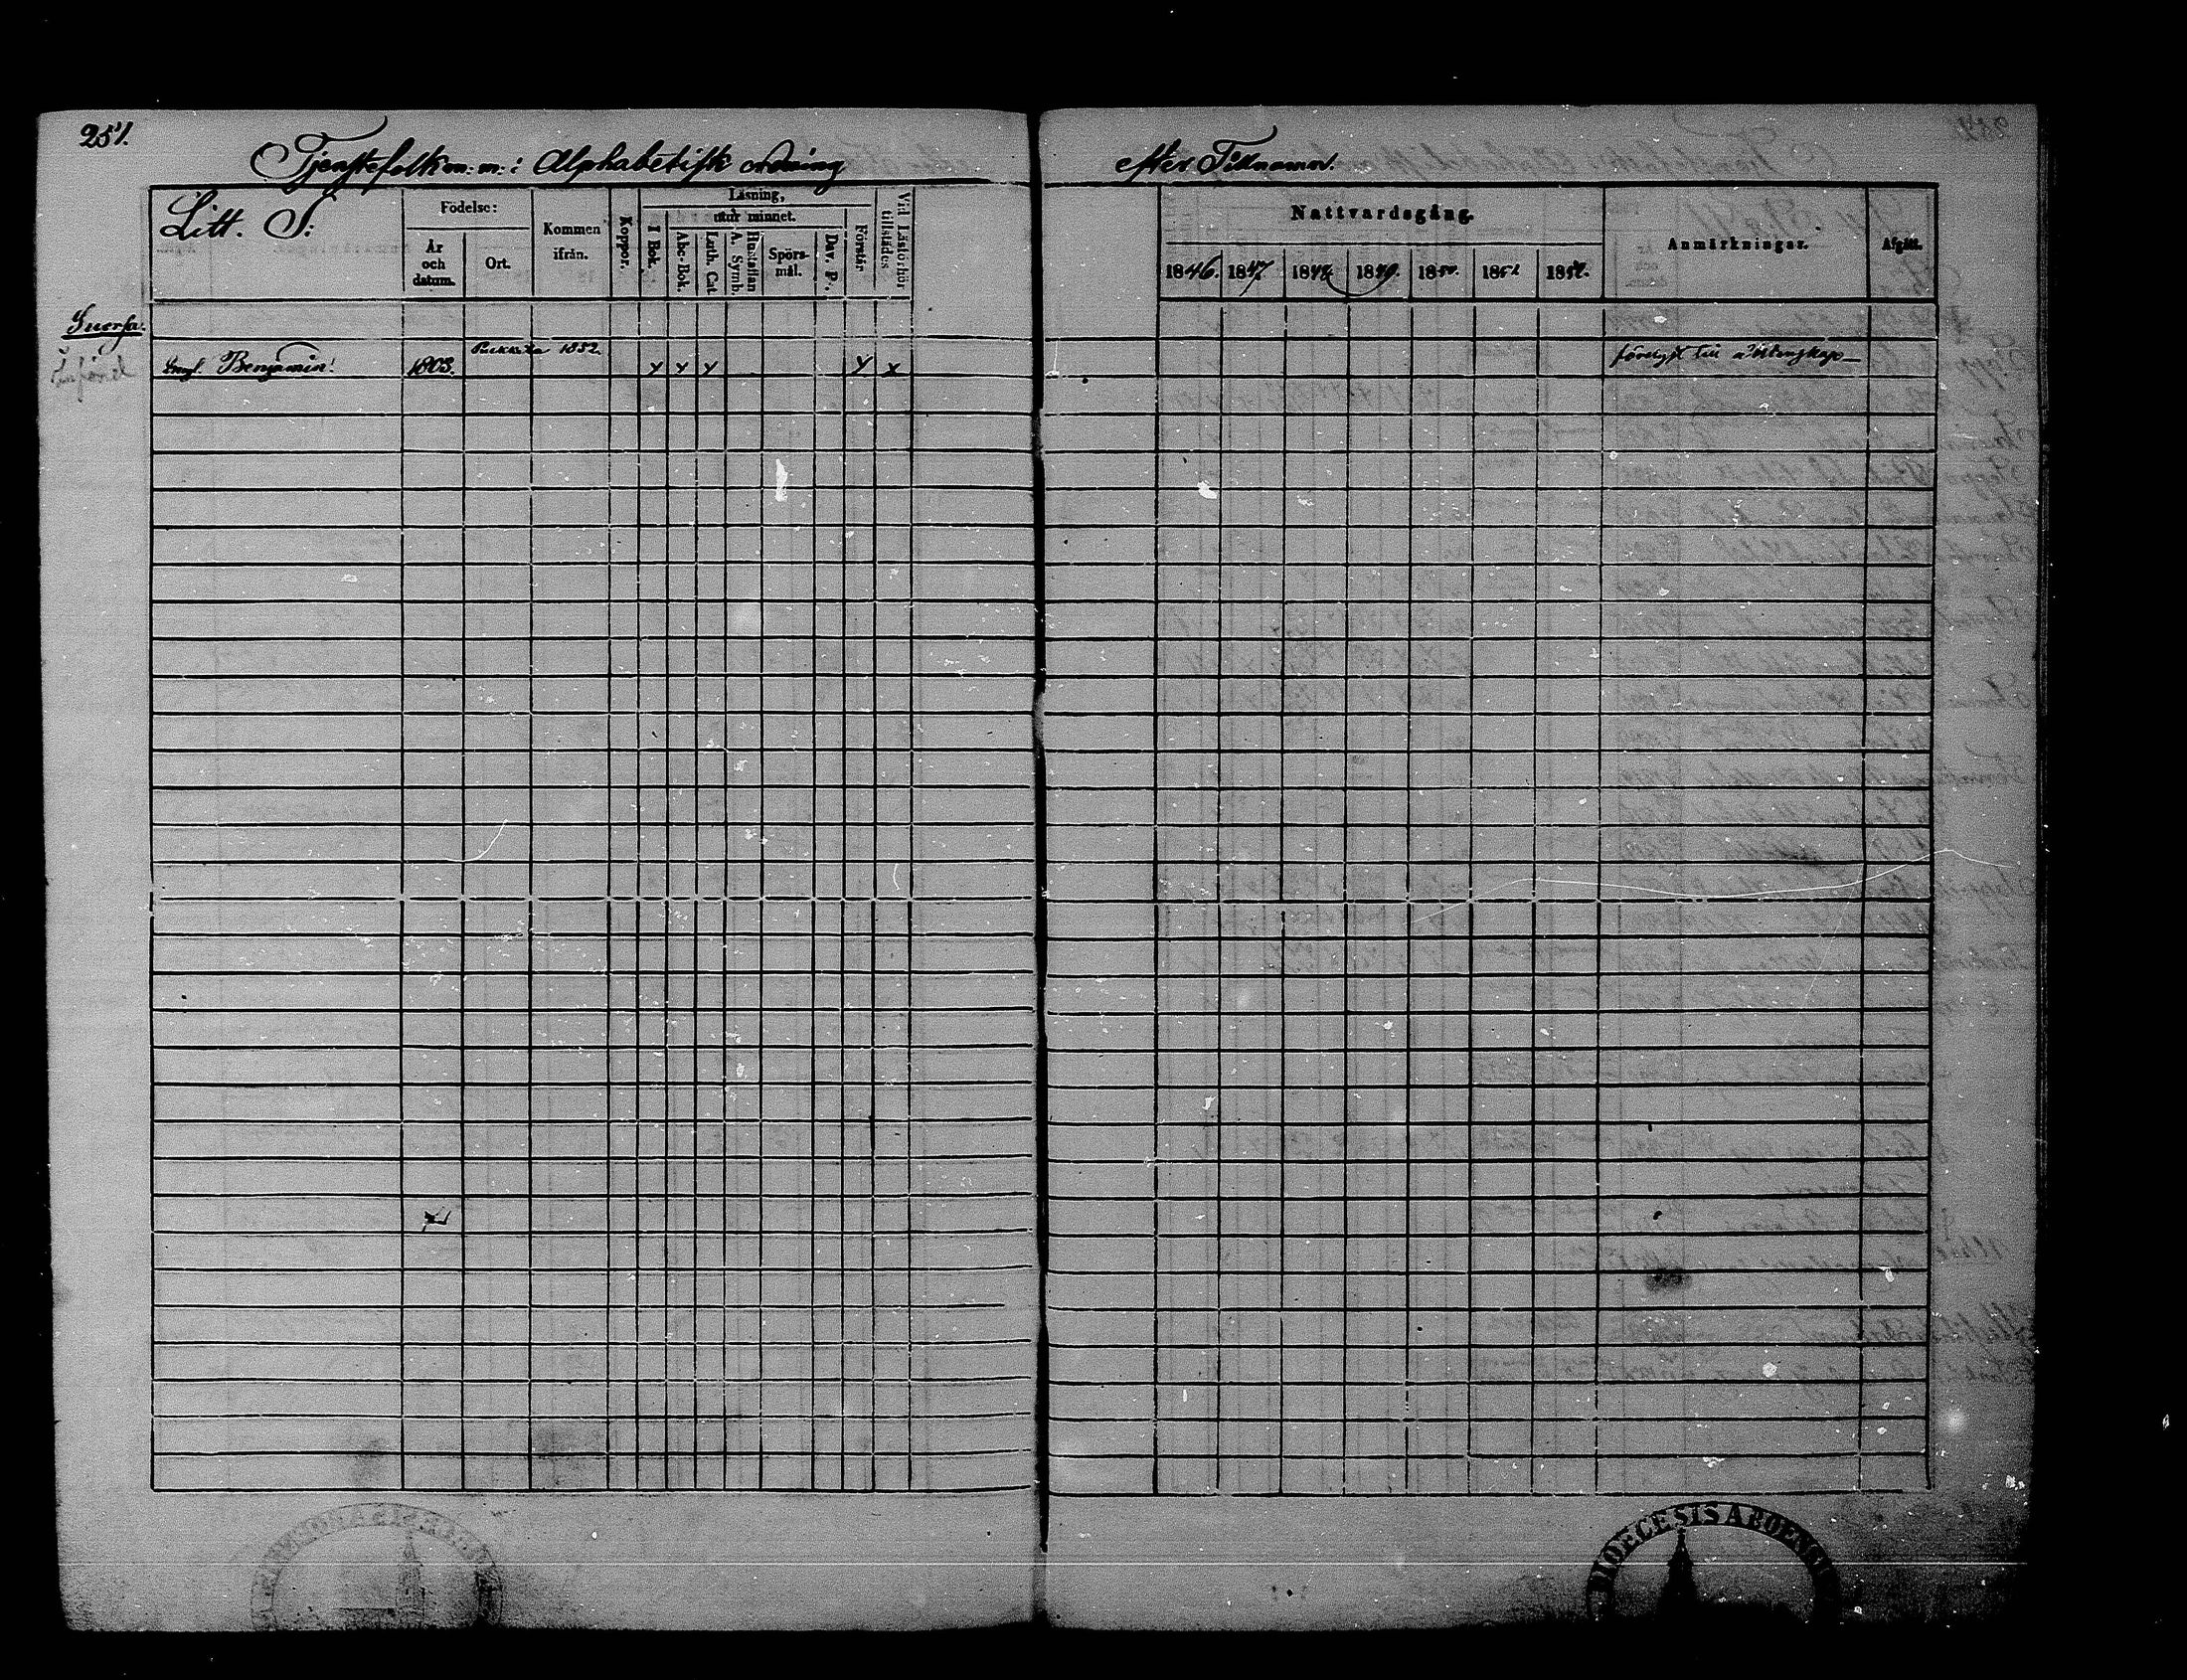 251.
Tjenstefolk m. m: i Alphabetisk ordning
efter Tillnamn.
Litt. S:
Födelse:
År och datum.
Ort.
Kommen ifrån.
Koppor.
Läsning,
utur minnet.
I Bok.
Abc-Bok.
Luth. Cat.
A. Symb.
Hustaflan
Spörs-mål.
Dav. P.
Förstår
Vid Läsförhör tillstädes
Nattvardsgång.
1846. 1847. 1848. 1849. 1850. 1851 1852.
Anmärkningar.
Afgått.
Benjamin 1803. 1852. x x x x x
till
DIOECESIS ABOENSIS